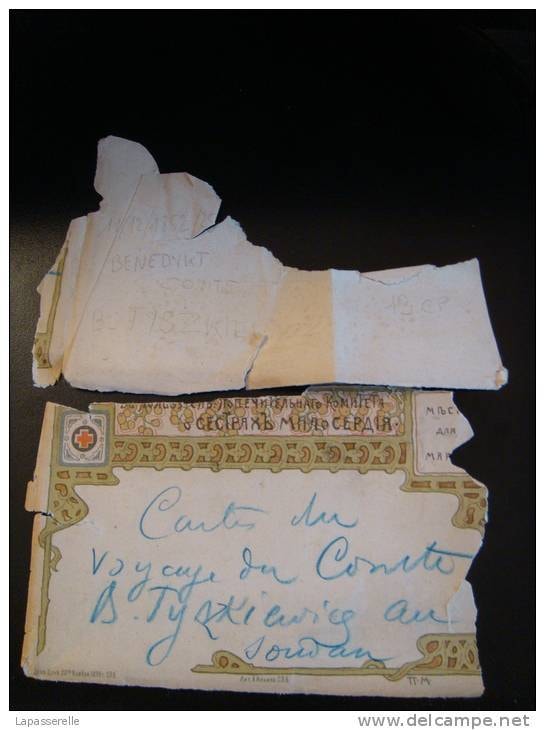 BENEDYKT
COMTE
B. TYSZKIE
19 CP
ПОПЕЧИТЕЛЬНАГО КОМИТЕТА
О СЕСТРАХЪ МИЛОСЕРДІЯ.
МѢС
ДЛЯ
МАР
Cartes du
Voyage du Comte
B. Tyszkiewicz au
Soudan
П·М
Lapasserelle
www.delcampe.net